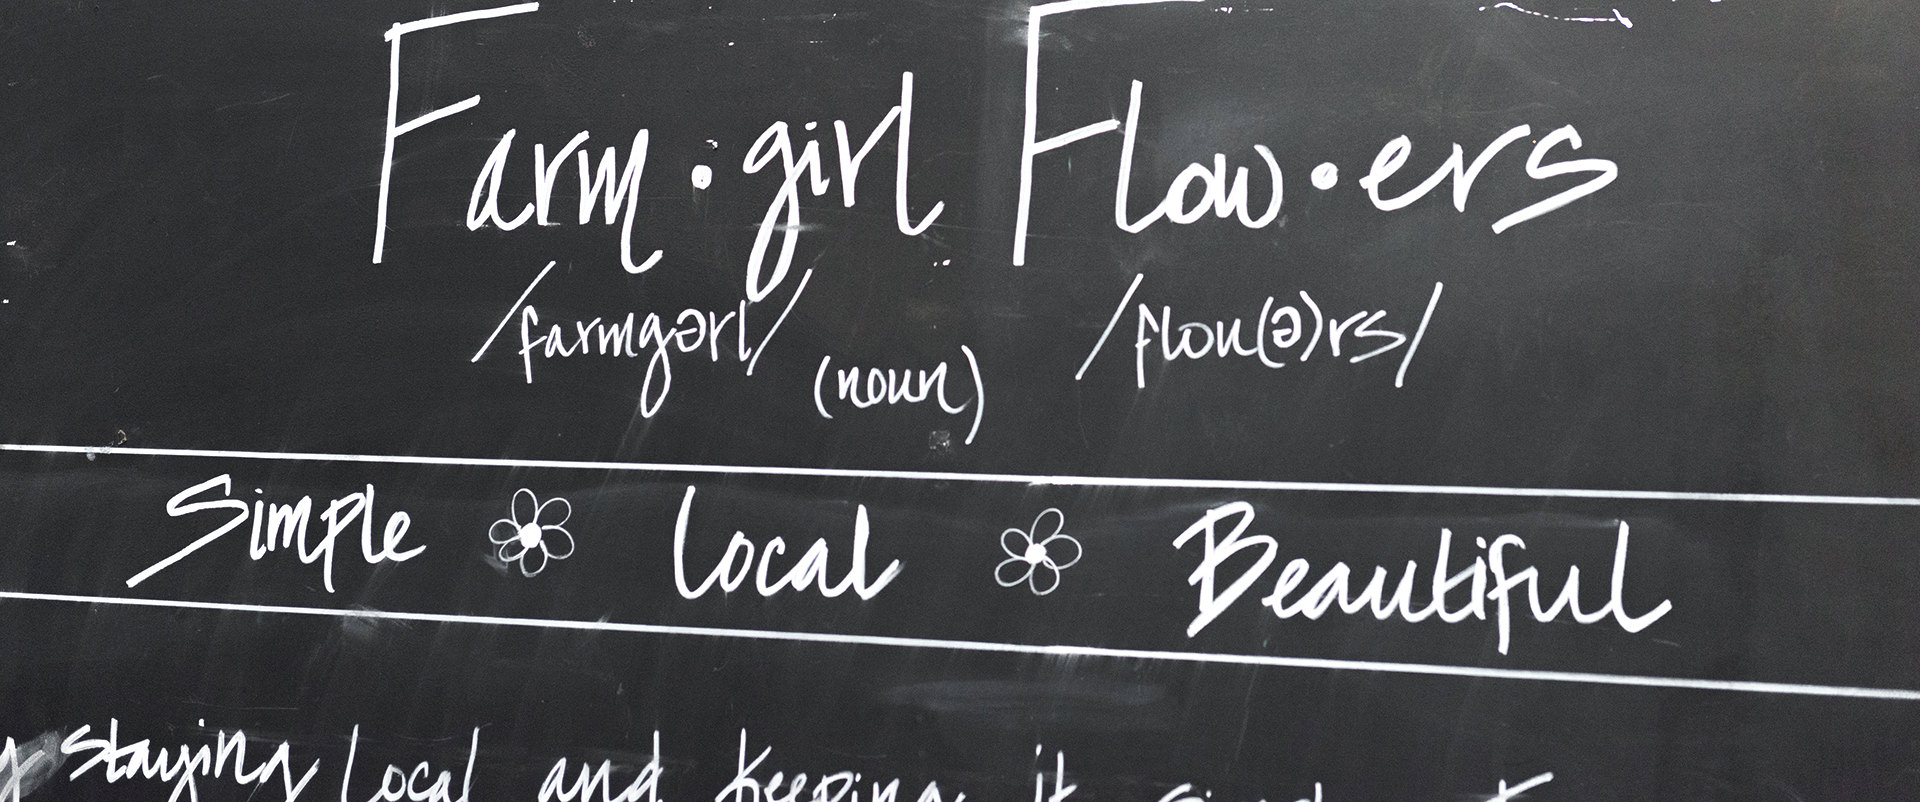 Farm•girl Flow•ers
/farmgərl/ (noun) /flou(ə)rs/
Simple Local Beautiful
staying local and keeping it